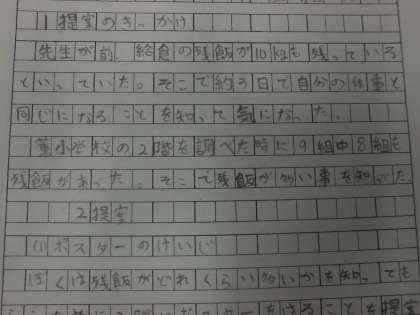 1提案のきっかけ
先生が前、給食の残飯が10kgも残っている
といっていた。そこで約3日で自分の体重と
同じになることを知って気になった。
小学校の2階を調べた時に9組中8組も
残飯があった。そこで残飯が多い事を知った。
2提案
(1)ポスターのけいじ
ぼくは残飯がどれくらい多いかを知っても
ことを提案